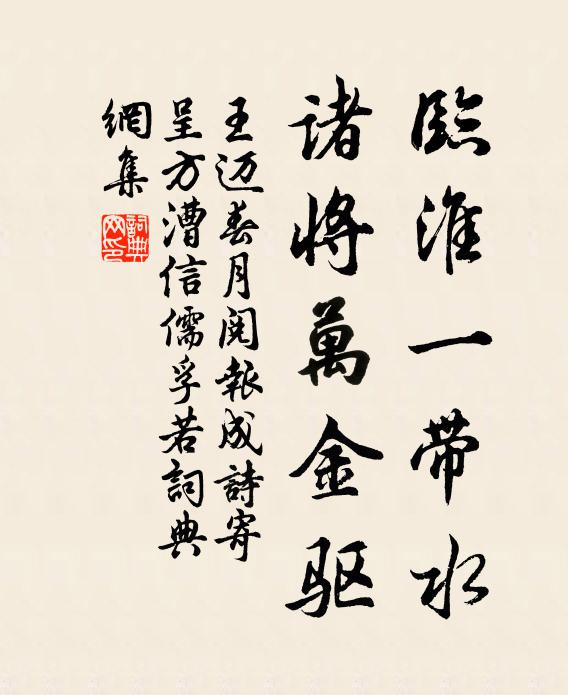 臨淮一带水
諸將萬金驱
王迈春月閱報成詩寄
呈方漕信儒孚若詞典
網集
詞典网印